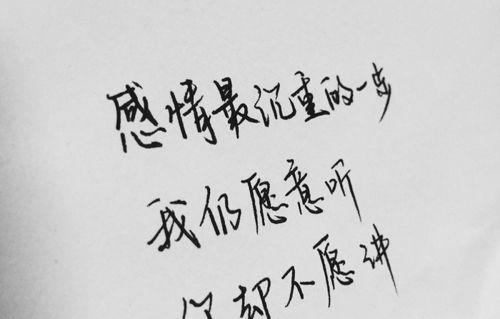 感情最沉重的一步
我们愿意听
却不愿讲